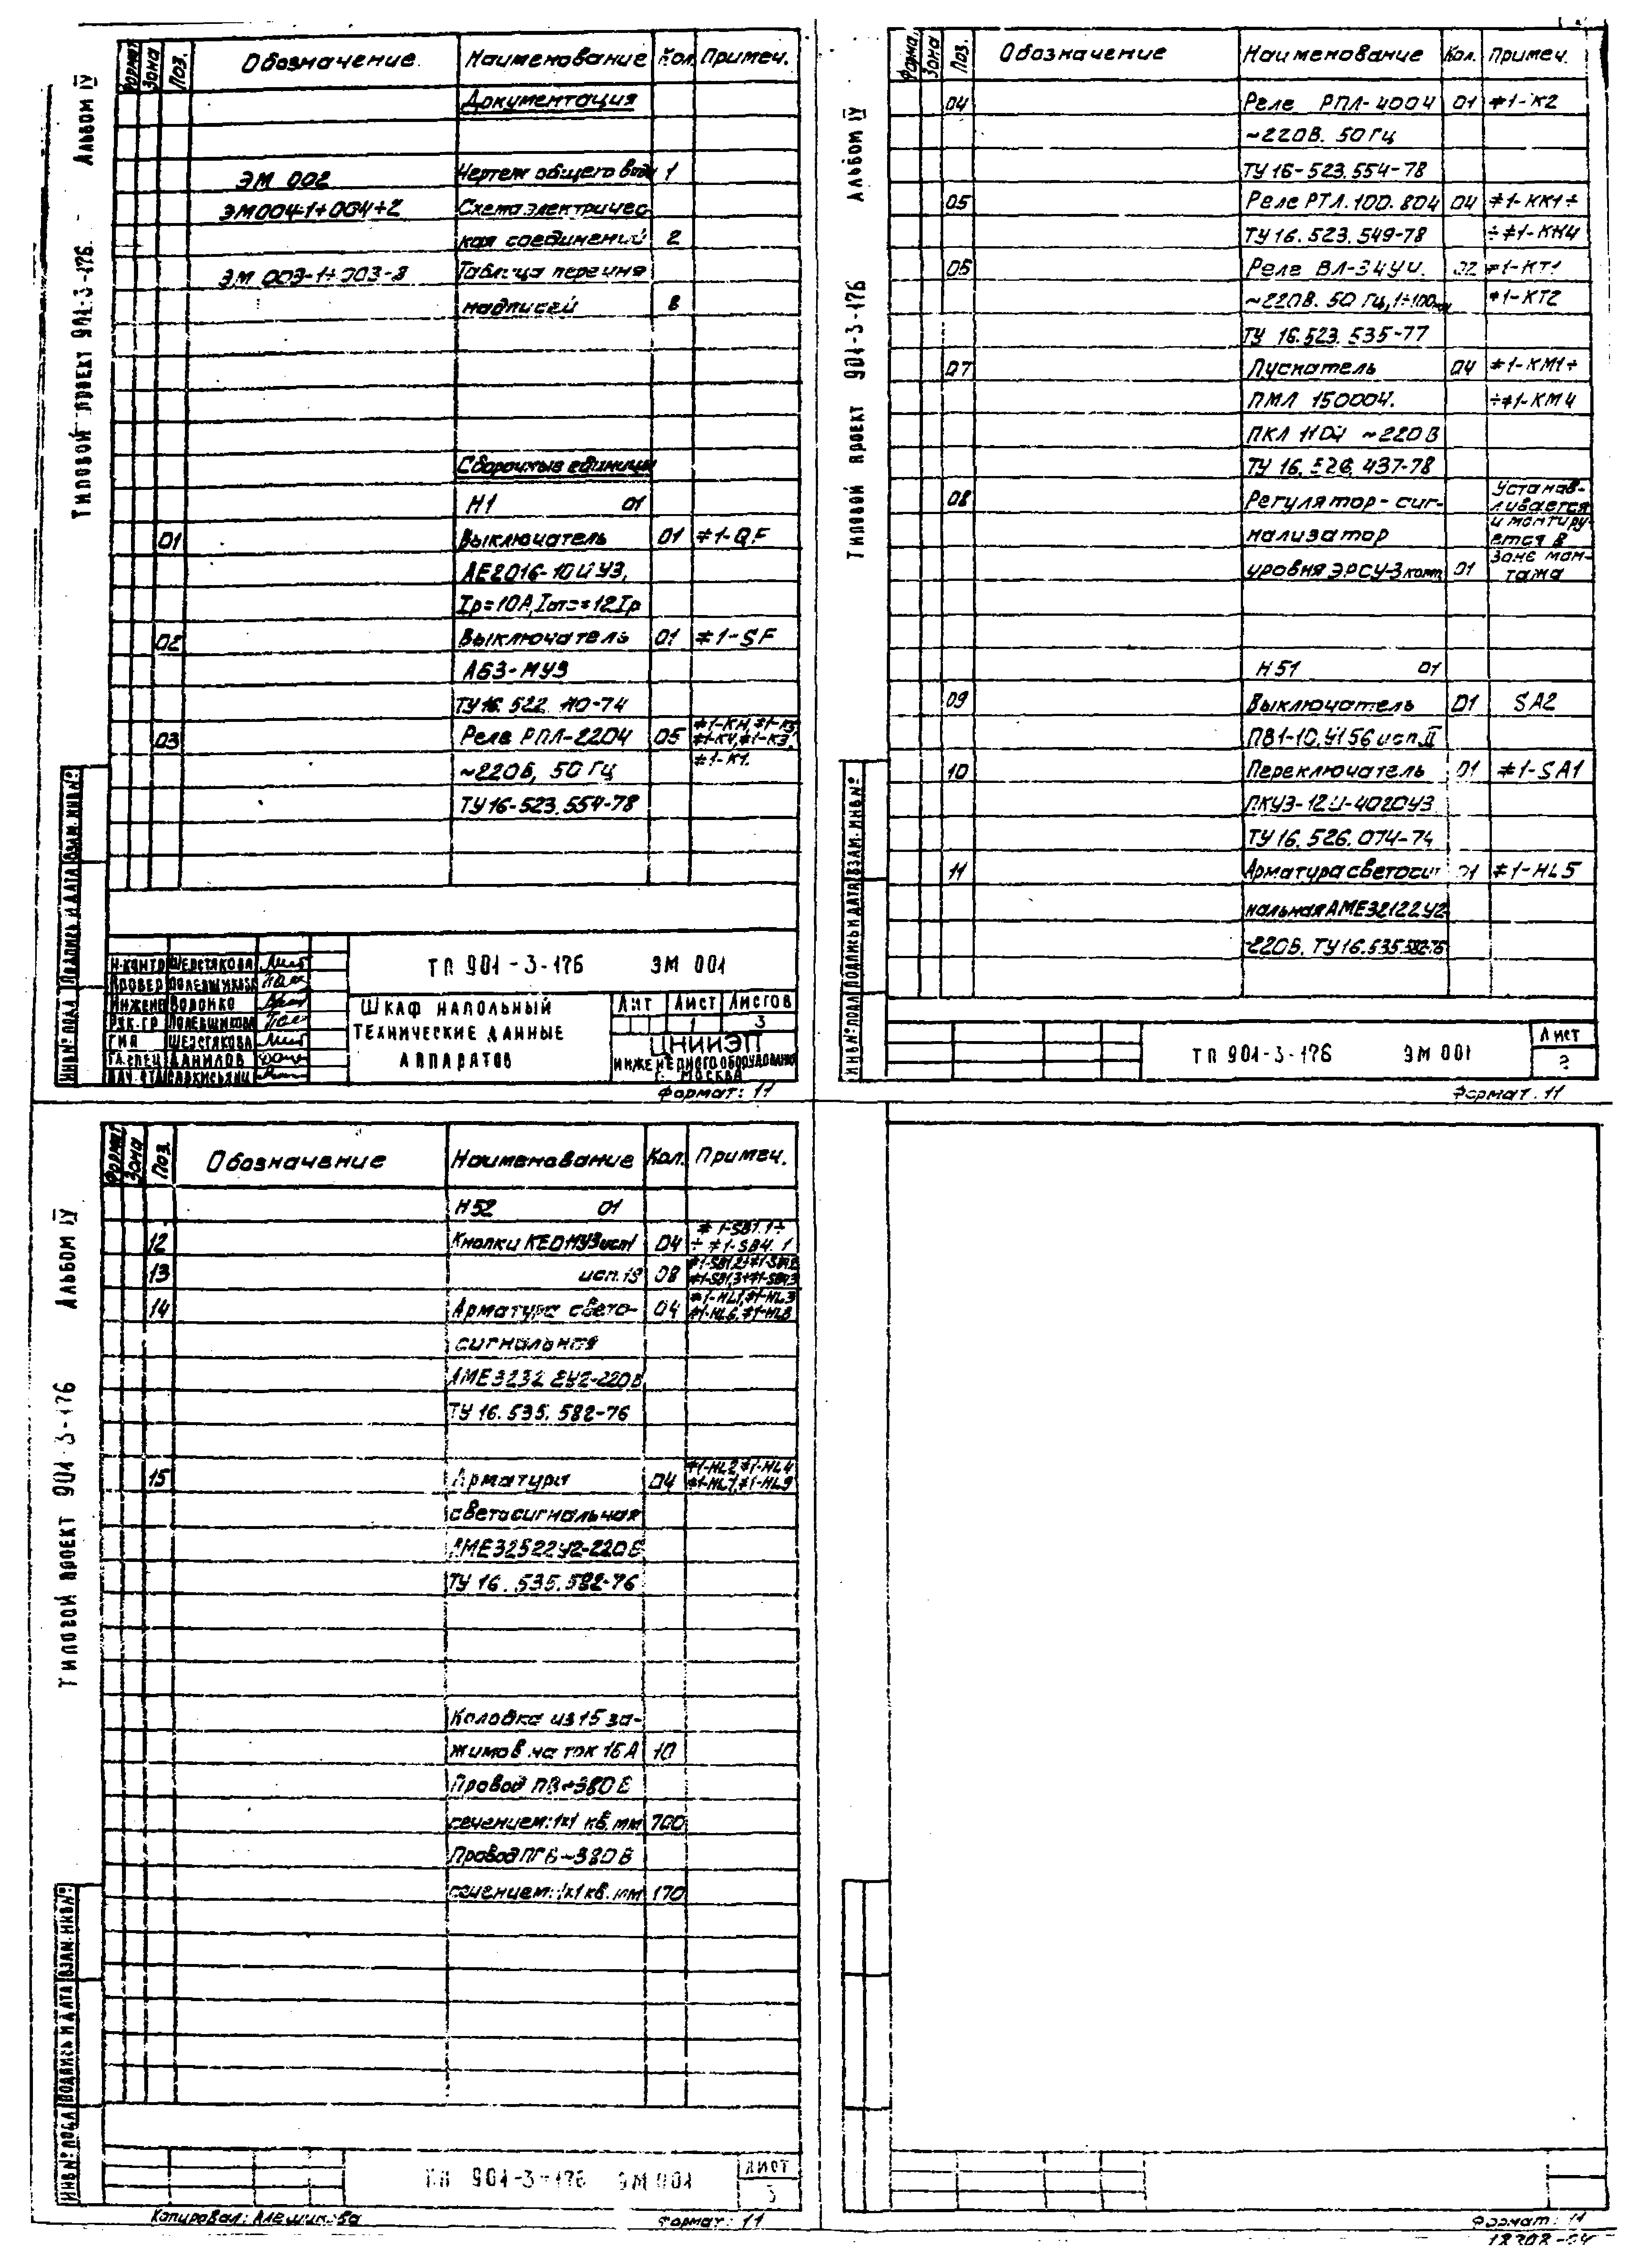 Альбом IV
Типовой проект 901-3-176
Формат Зона Поз. Обозначение Наименование Кол. Примеч.
Документация
ЭМ 002 Чертеж общего вида 1
ЭМ004-1÷004÷2 Схема электричес
кая соединений 2
ЭМ 003-1÷003-8 Таблица перечня
надписей 8
Сборочные единицы
Н1 01
01 Выключатель 01 ≠1-QF
АЕ2016-10ЦУЗ,
Iр=10А, Iотс=12Iр
02 Выключатель 01 ≠1-SF
АБЗ-МУЗ
ТУ16.522.110-74
03 Реле РПЛ-2204 05
≠1-К1.
~220В, 50 Гц
ТУ16-523.554-78
Инв№ подл Подпись и дата Взам. инв№
Н.контр Шерстякова
Провер Полевщикова
Инжене Воронко
Рук.гр Полевщикова
ГИП Шерстякова
Гл.спец Данилов
ТП 901-3-176 ЭМ 001
Шкаф напольный
технические данные
аппаратов
Лит Лист Листов
1 3
ЦНИИЭП
инженерного оборудования
г. Москва
Формат: 11
Альбом IV
Типовой проект 901-3-176
Форма. Зона Поз. Обозначение Наименование Кол. Примеч.
04 Реле РПЛ-4004 01 ≠1-К2
~220В. 50 Гц
ТУ 16-523.554-78
05 Реле РТЛ.100.804 04 ≠1-КК1÷
ТУ 16.523.549-78 ÷≠1-КК4
06 Реле ВЛ-34УЧ. 02 ≠1-КТ1
~220В. 50 Гц, 1÷100 ≠1-КТ2
ТУ 16.523.535-77
07 Пускатель 04 ≠1-КМ1÷
ПМЛ 150004. ÷≠1-КМ4
ПКЛ 1104 ~220В
ТУ 16.526.437-78
08 Регулятор-сиг- Устанав-
ливается
нализатор и монтиру-
ется в
уровня ЭРСУ-3 комп 01 зоне мон-
тажа
Н51 01
09 Выключатель 01 SA2
ПВ1-10.У156 исп.II
10 Переключатель 01 ≠1-SA1
ПКУЗ-12И-4020УЗ
ТУ 16.526.074-74
11 Арматура светосиг 01 ≠1-HL5
нальная АМЕ32122У2
-220В. ТУ16.535.582-76
Инв№ подл Подпись и дата Взам. инв№
ТП 901-3-176 ЭМ 001
Лист
2
Формат. 11
Альбом IV
Типовой проект 901-3-176
Формат Зона Поз. Обозначение Наименование Кол. Примеч.
Н52 01
12 Кнопки КЕ011УЗ исп1 04 ≠1-SB1.1÷
÷≠1-SB4.1
13 08
14 Арматура свето- 04 ≠1-HL1,≠1-HL3
≠1-HL6,≠1-HL8
сигнальная
АМЕ3232 2У2-220В
ТУ 16.535.582-76
15 Арматура 04 ≠1-HL2,≠1-HL4
≠1-HL7,≠1-HL9
светосигнальная
АМЕ32522У2-220В
ТУ 16.535.582-76
Колодка из 15 за-
жимов на ток 16А 10
Провод ПВ-380В
сечением: 1х1 кв. мм 700
Провод ПГВ-380В
сечением: 1х1 кв. мм 170
Инв№ подл Подпись и дата Взам. инв№
ТП 901-3-176 ЭМ 001
Лист
3
Копировал: Алешикова
Формат: 11
Формат: 11
18308-04